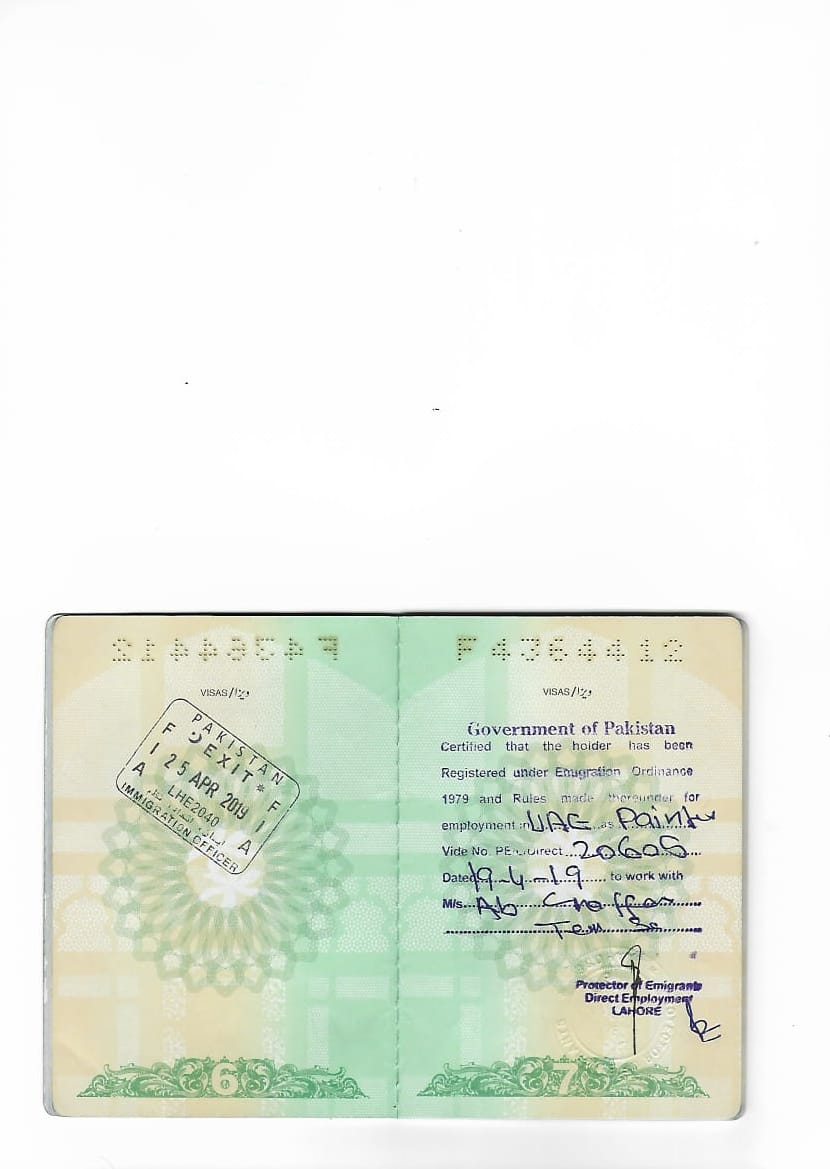 F4364412
VISAS/ویزا
PAKISTAN
F EXIT F
I 25 APR 2019 I
A LHE2040 A
IMMIGRATION OFFICER
6
F4364412
VISAS/ویزا
Government of Pakistan
Certified that the holder has been
Registered under Emigration Ordinance
1979 and Rules made thereunder for
employment in UAE as Painter
Vide No. Direct 20605
Dated 19-4-19 to work with
M/s. Ab
Protector of Emigrants
Direct Employment
LAHORE
7